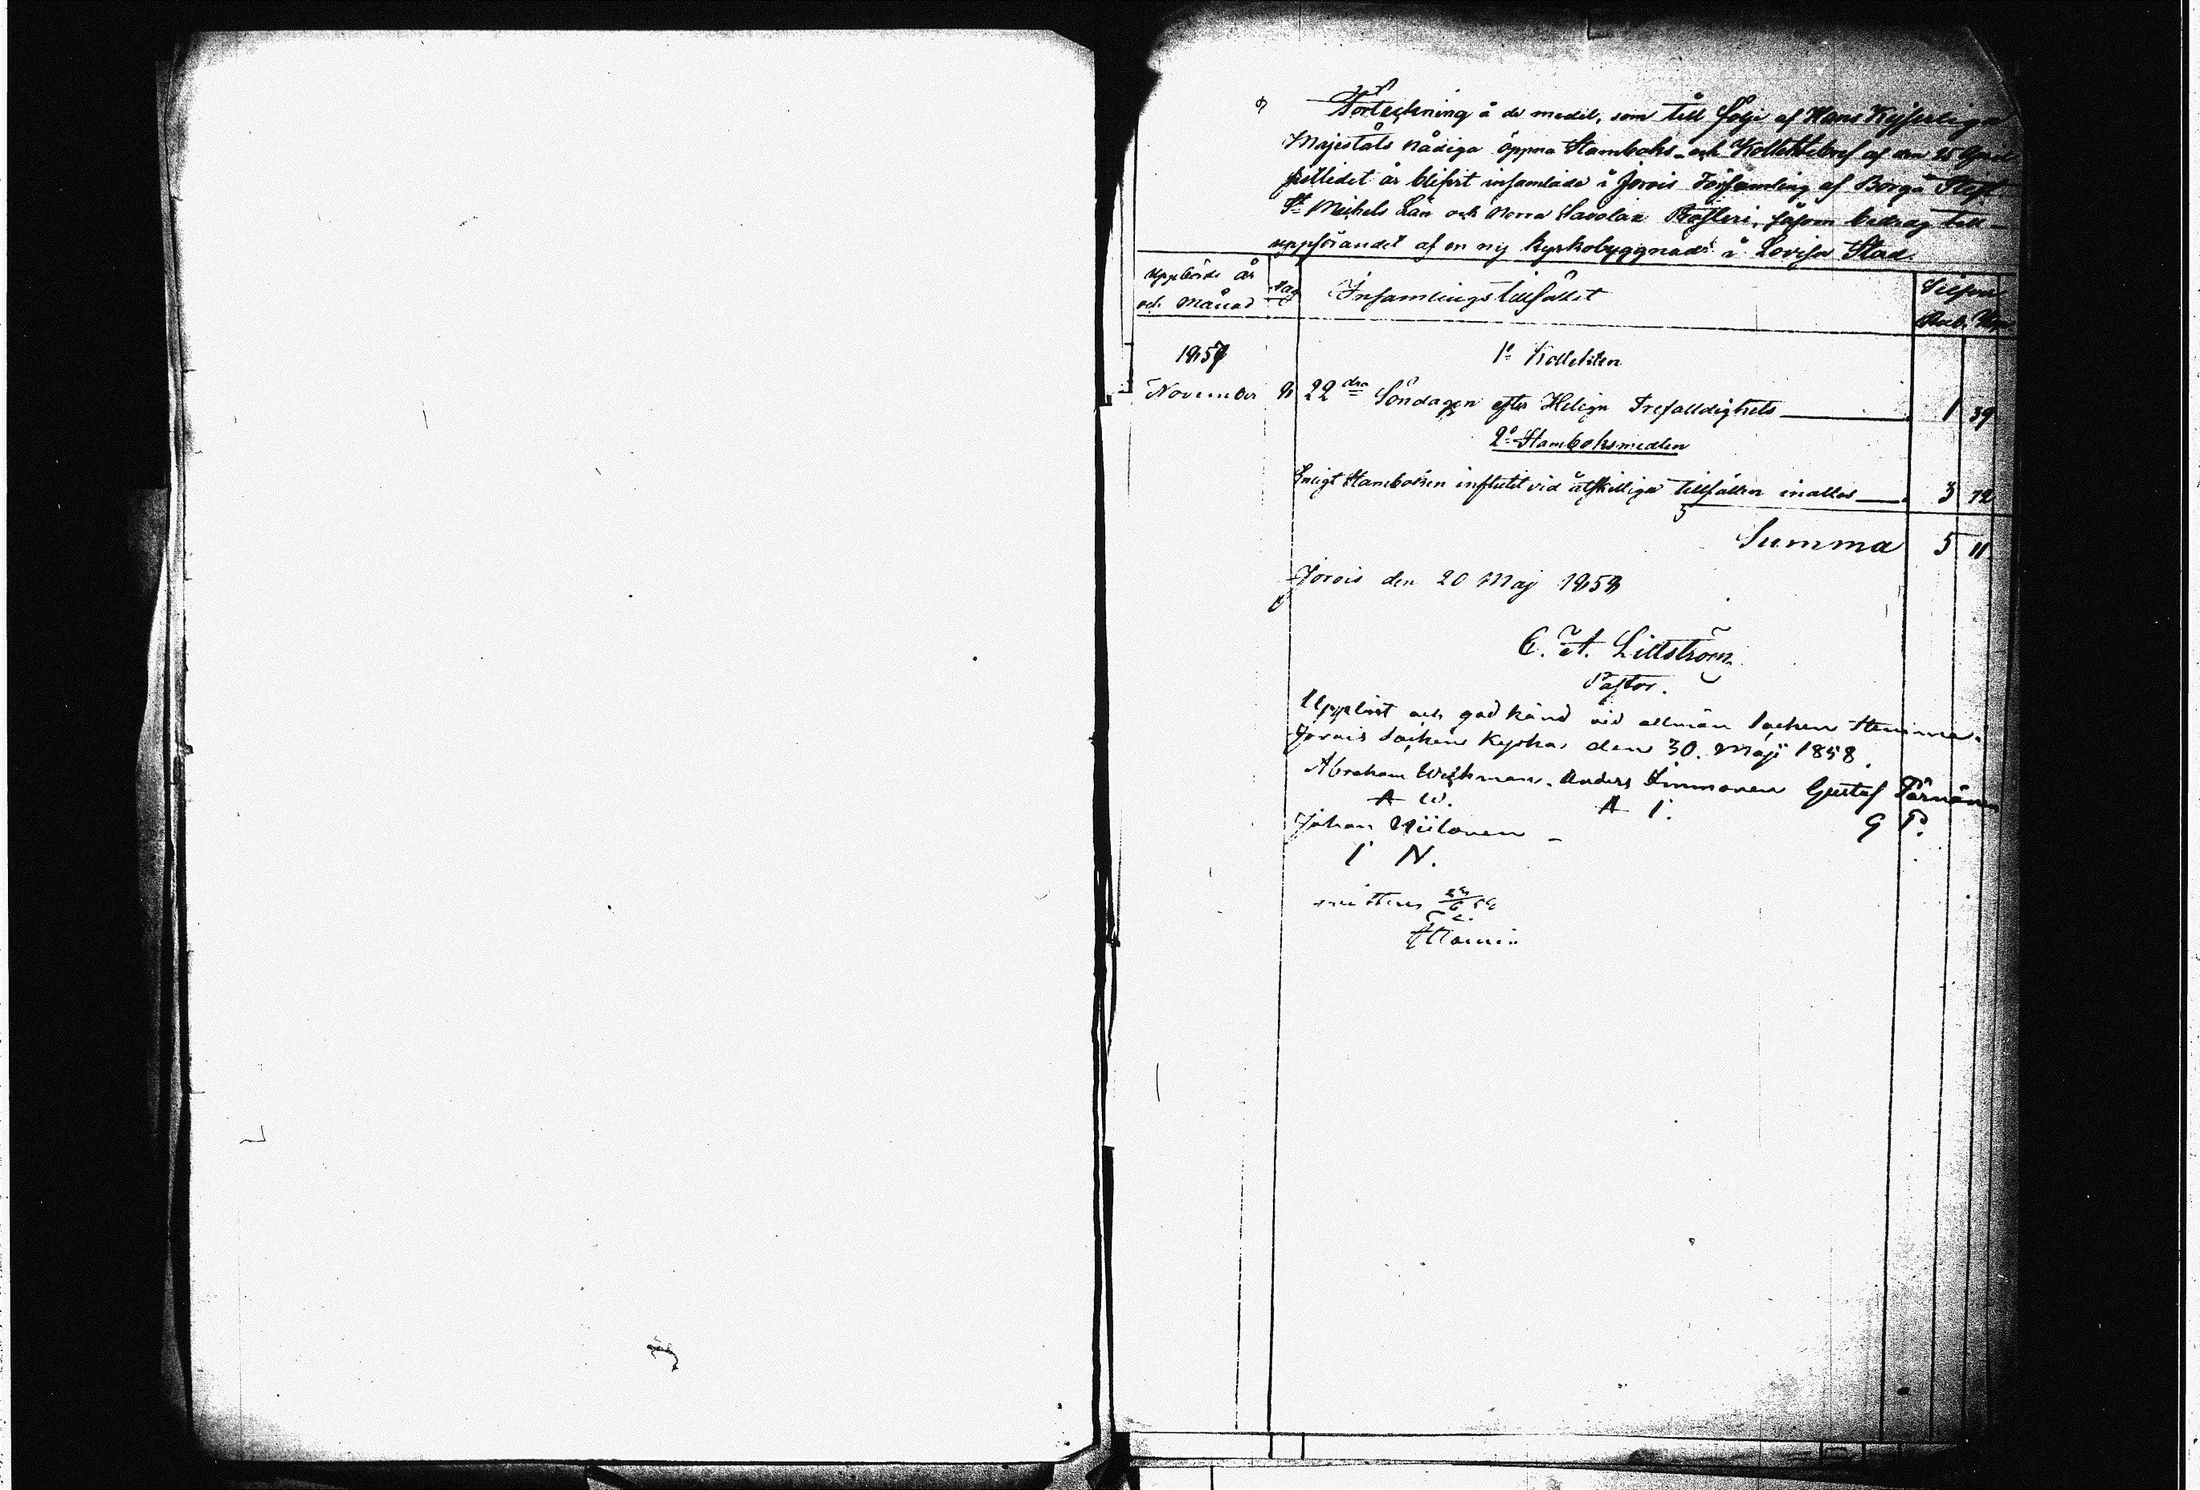 Förteckning å de medel, som till följe af Hans Kejserliga
Majestäts nådiga öppna Stamboks- och Kollektbref af den 25
förlidet år blifvit insamlade i Jorois Församling af Borgå Stift
St Michels Län och Norra Savolax Prosteri, såsom bidrag till
uppförandet af en ny kyrkobyggnad i Lovisa Stad.
Uppbörds år och Månad Dag Insamlingstillfället Silfver Rub. Kop.
1857 1o Kollekten
November 8 22dra Söndagen efter Heliga Trefaldighets 1 39
2o Stamboksmedlen
Enligt Stamboken influtit vid åtskilliga tillfällen inalles 3 72
Summa 5 11
Jorois den 20 Maj 1858
C. A. Littström
Pastor.
Uppläst och godkänd vid allmän Sockne Stämma i
Jorois Sockens Kyrka den 30. Maji 1858.
Abraham Wichman. Anders Immonen Gustaf Pärnänen
A W. A I. G P.
Johan Niilonen
I N.